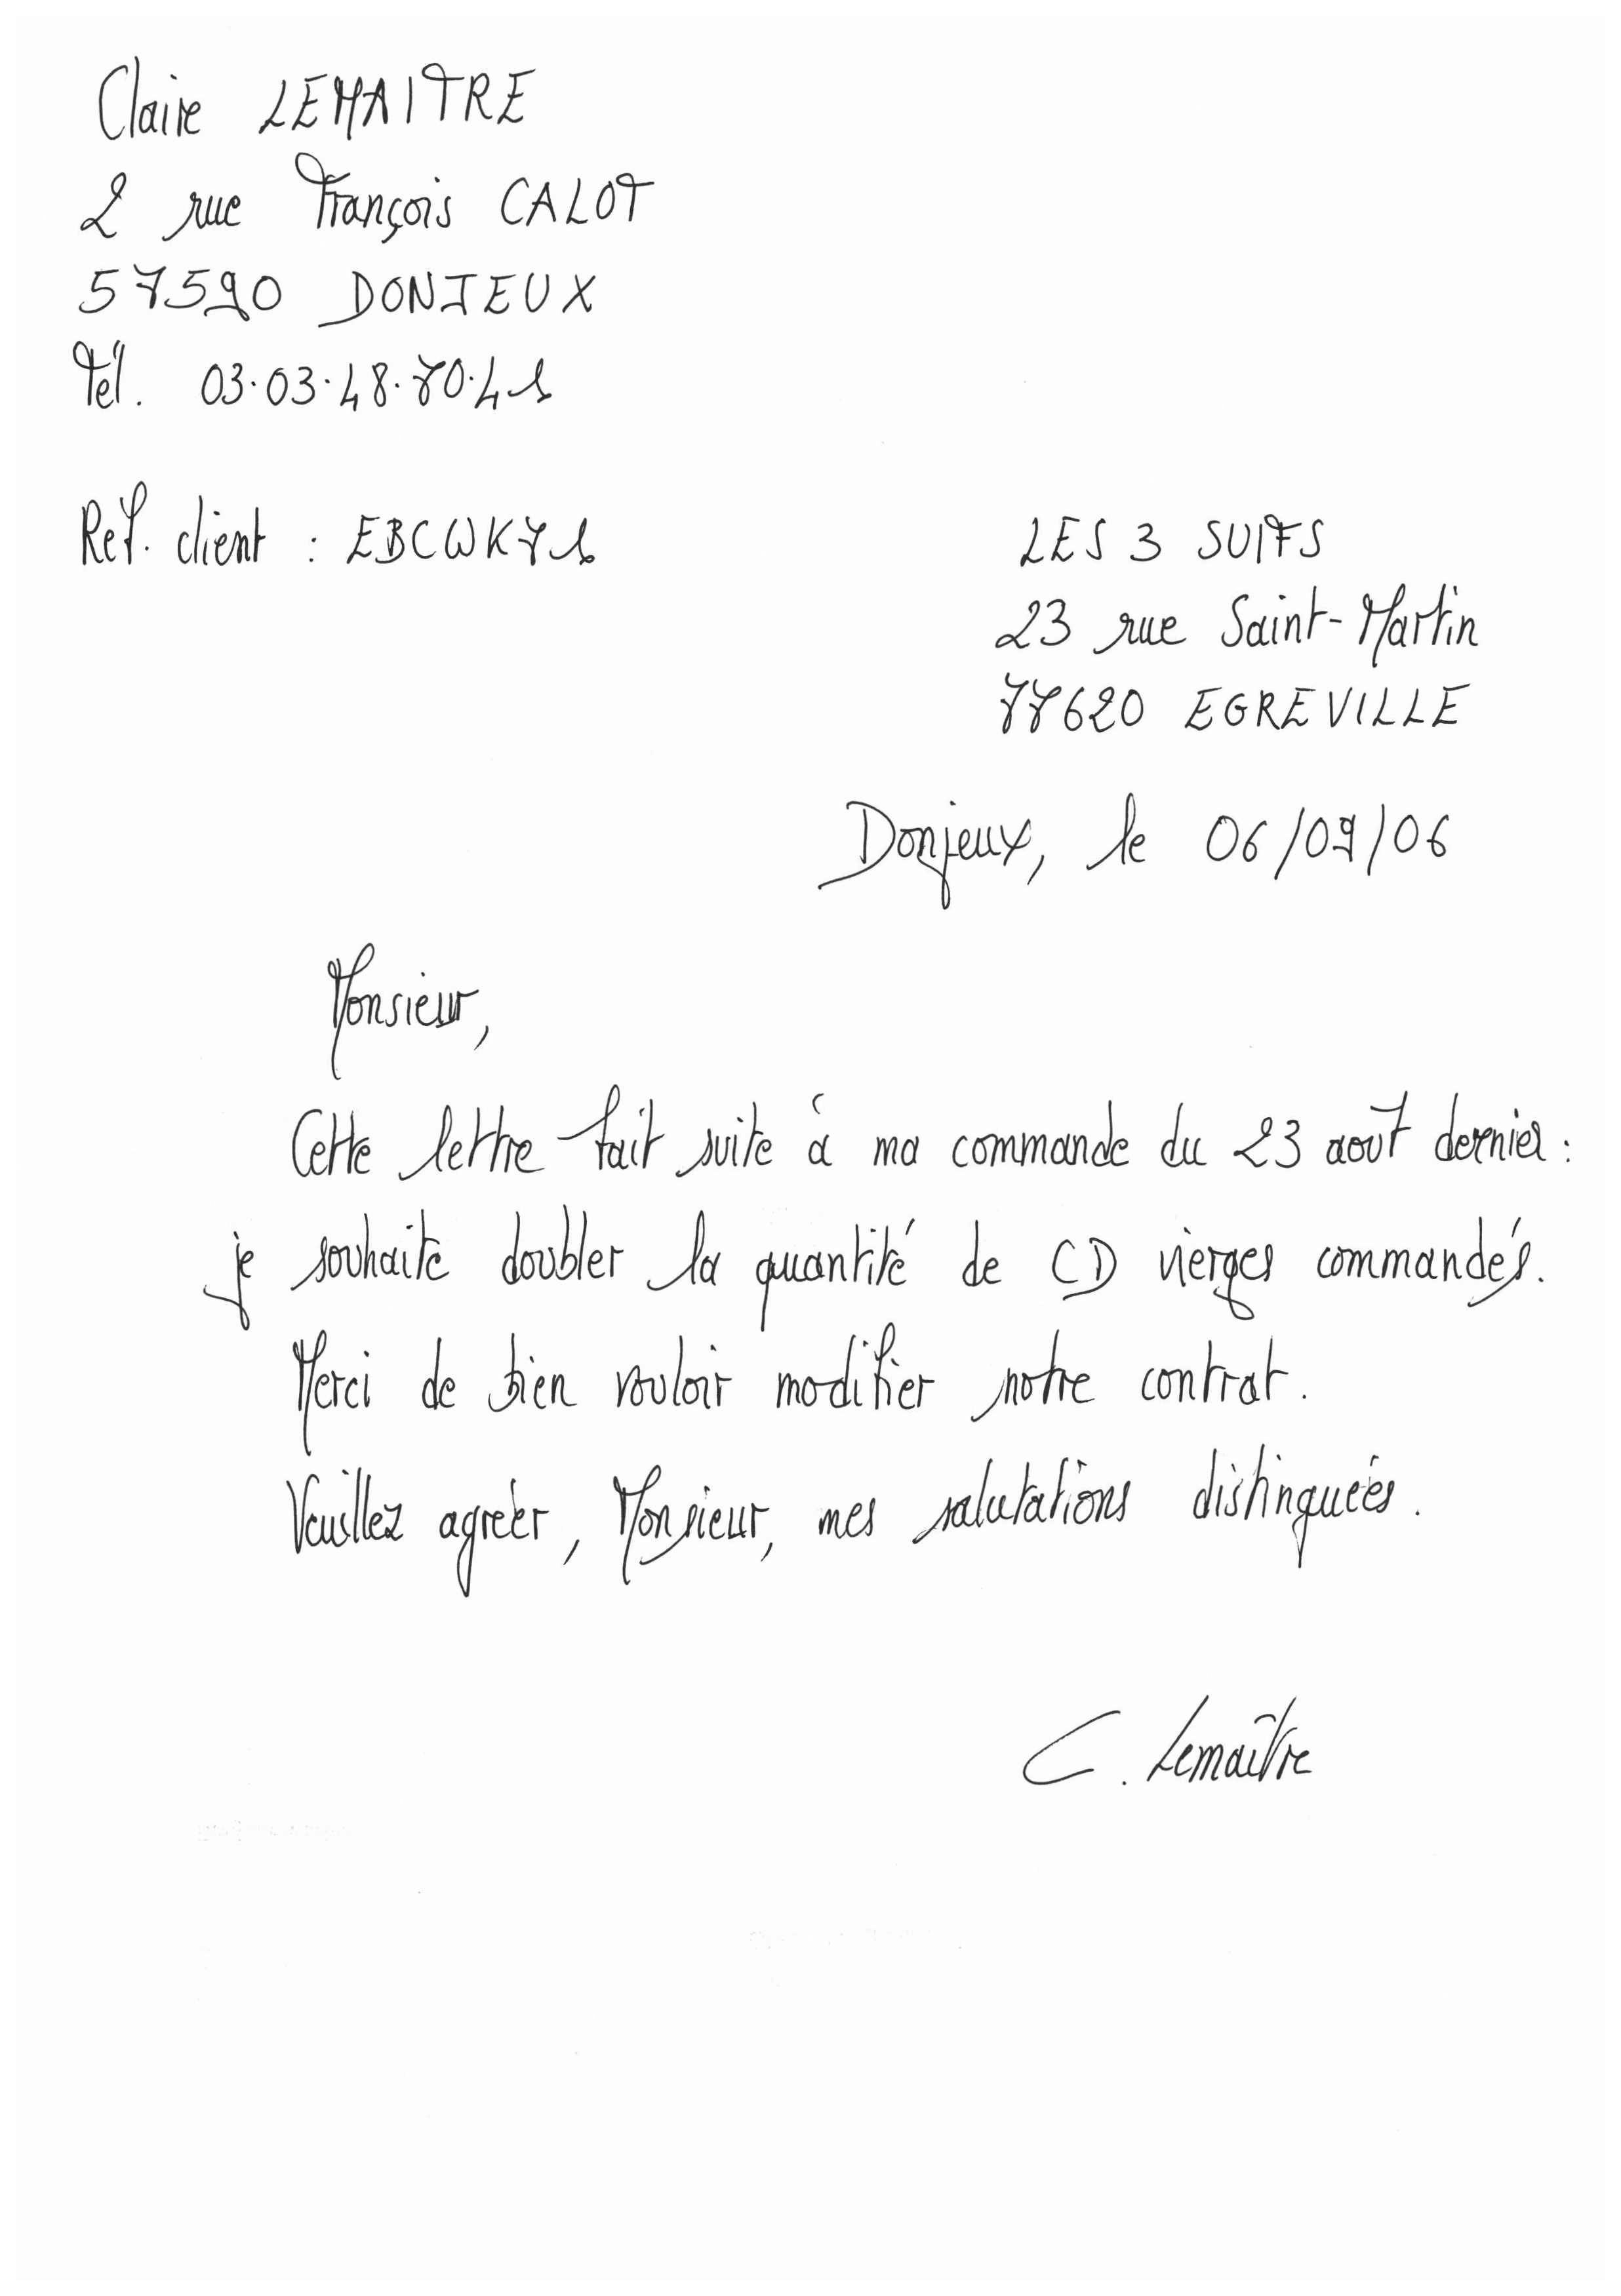 Claire LEMAITRE
2 rue François CALOT
57590 DONJEUX
Tél. 03.03.48.70.41
Réf. client : EBCWK71
LES 3 SUIFS
23 rue Saint-Martin
77620 EGREVILLE
Donjeux, le 06/09/06
Monsieur,
Cette lettre fait suite à ma commande du 23 aout dernier :
je souhaite doubler la quantité de CD vierges commandés.
Merci de bien vouloir modifier notre contrat.
Veuillez agréer, Monsieur, mes salutations distinguées.
C. Lemaître